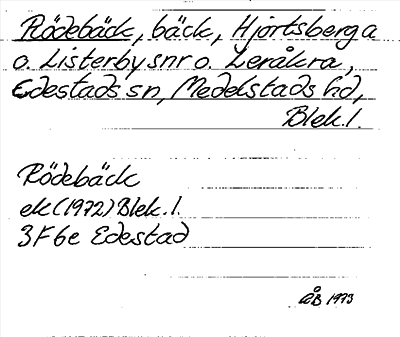 Rödebäck, bäck, Hjortsberga
o. Listerby snr o. Leråkra,
Edestads sn, Medelstads hd,
Blek. l.
Rödebäck
ek (1972) Blek. l.
3F6e Edestad
ÅB 1973